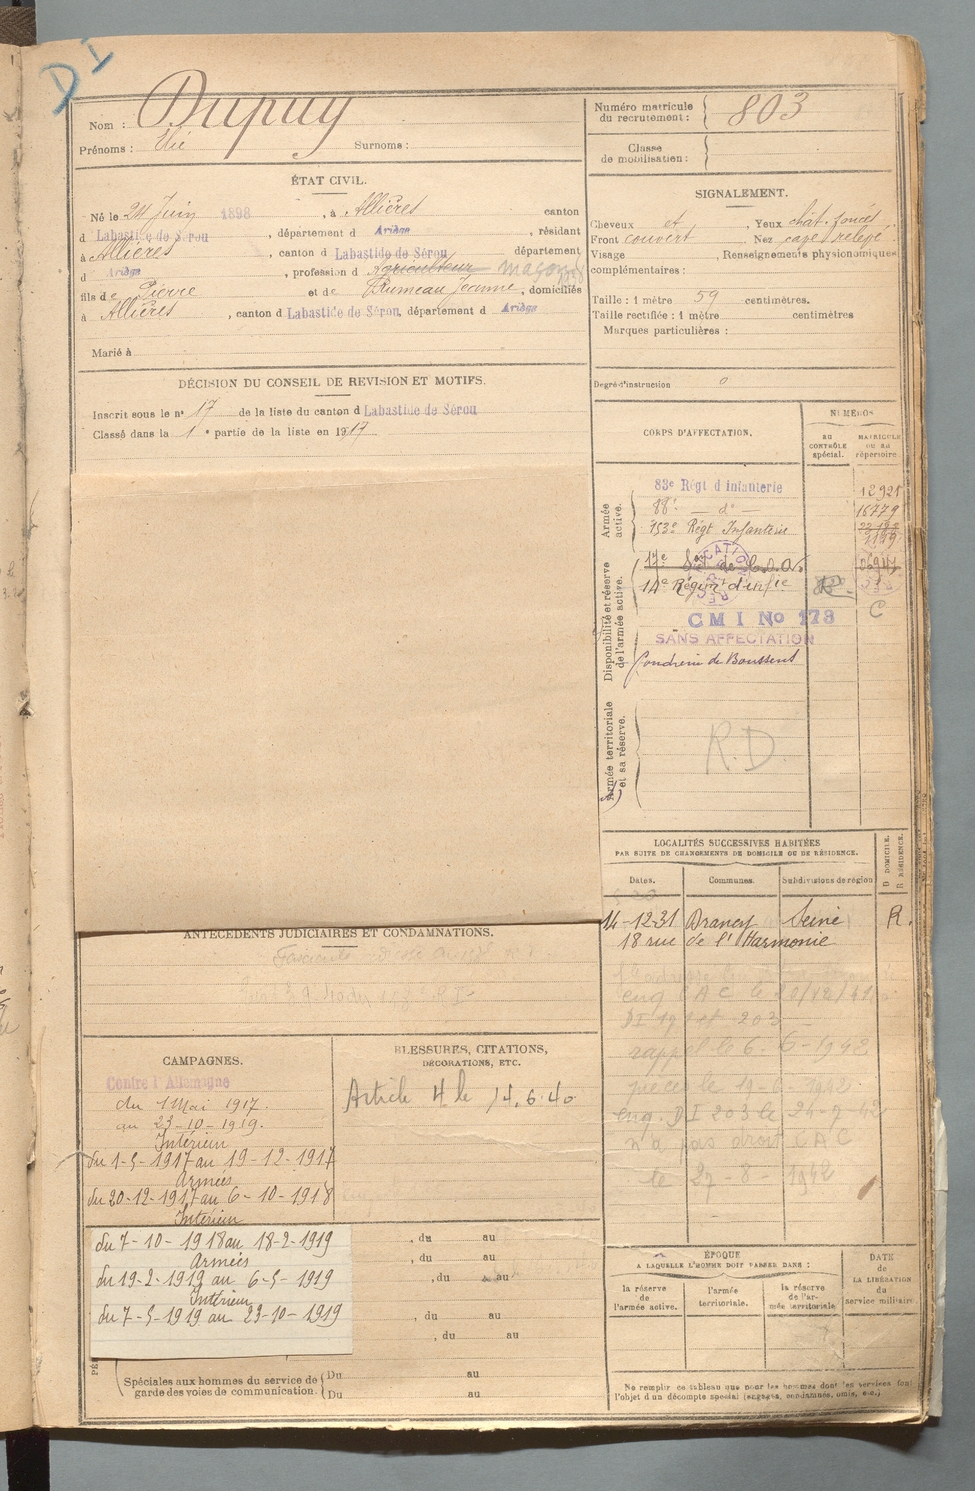 D I
Nom : Dupuy
Prénoms : Elie Surnoms :
Numéro matricule du recrutement : 803
Classe de mobilisation :
ÉTAT CIVIL.
Né le 24 Juin 1898, à Allières canton
d Labastide de Sérou, département d Ariège, résidant
à Allières, canton d Labastide de Sérou département
d Ariège, profession d Agriculteur maçon
fils de Pierre et de Rumeau Jeanne, domiciliés
à Allières, canton d Labastide de Sérou, département d Ariège
Marié à
SIGNALEMENT.
Cheveux et, Yeux chât. foncés
Front couvert Nez cave relevé
Visage, Renseignements physionomiques
complémentaires :
Taille : 1 mètre 59 centimètres.
Taille rectifiée : 1 mètre centimètres
Marques particulières :
Degré d'instruction 0
DÉCISION DU CONSEIL DE REVISION ET MOTIFS.
Inscrit sous le n° 17 de la liste du canton d Labastide de Sérou
Classé dans la 1e partie de la liste en 1917
CORPS D'AFFECTATION.
NUMÉROS
AU CONTRÔLE spécial.
MATRICULE OU AU répertoire.
Armée active.
83e Régt d'Infanterie 12921
88e — do — 16779
153e Régt Infanterie
Disponibilité et réserve de l'armée active.
14e Régim d'infie
CMI No 173 C
SANS AFFECTATION
Poudrerie de Boussens
Armée territoriale et sa réserve.
R.D.
LOCALITÉS SUCCESSIVES HABITÉES
PAR SUITE DE CHANGEMENTS DE DOMICILE OU DE RÉSIDENCE.
D DOMICILE.
R RÉSIDENCE.
Dates. Communes. Subdivisions de région
14-12-31 Drancy Seine R.
18 rue de l'Harmonie
DI 203
rappel le 6-6-1942
eng. DI 203 le 24-7-42
n'a pas droit CAC
le 27-8-1942
ANTÉCÉDENTS JUDICIAIRES ET CONDAMNATIONS.
CAMPAGNES.
Contre l'Allemagne
du 1 Mai 1917.
au 23-10-1919.
Intérieur
du 1-5-1917 au 19-12-1917
Armées
du 20-12-1917 au 6-10-1918
Intérieur
du 7-10-1918 au 18-2-1919
Armées
du 19-2-1919 au 6-5-1919
Intérieur
du 7-5-1919 au 23-10-1919
BLESSURES, CITATIONS,
DÉCORATIONS, ETC.
Article 4 le 14.6.40
, du au
, du au
, du au
, du au
, du au
Spéciales aux hommes du service de garde des voies de communication.
Du au
Du au
ÉPOQUE
A LAQUELLE L'HOMME DOIT PASSER DANS :
la réserve de l'armée active.
l'armée territoriale.
la réserve de l'armée territoriale
DATE de LA LIBÉRATION du service militaire.
Ne remplir ce tableau que pour les hommes dont les services font
l'objet d'un décompte spécial (engagés, condamnés, omis, etc.)